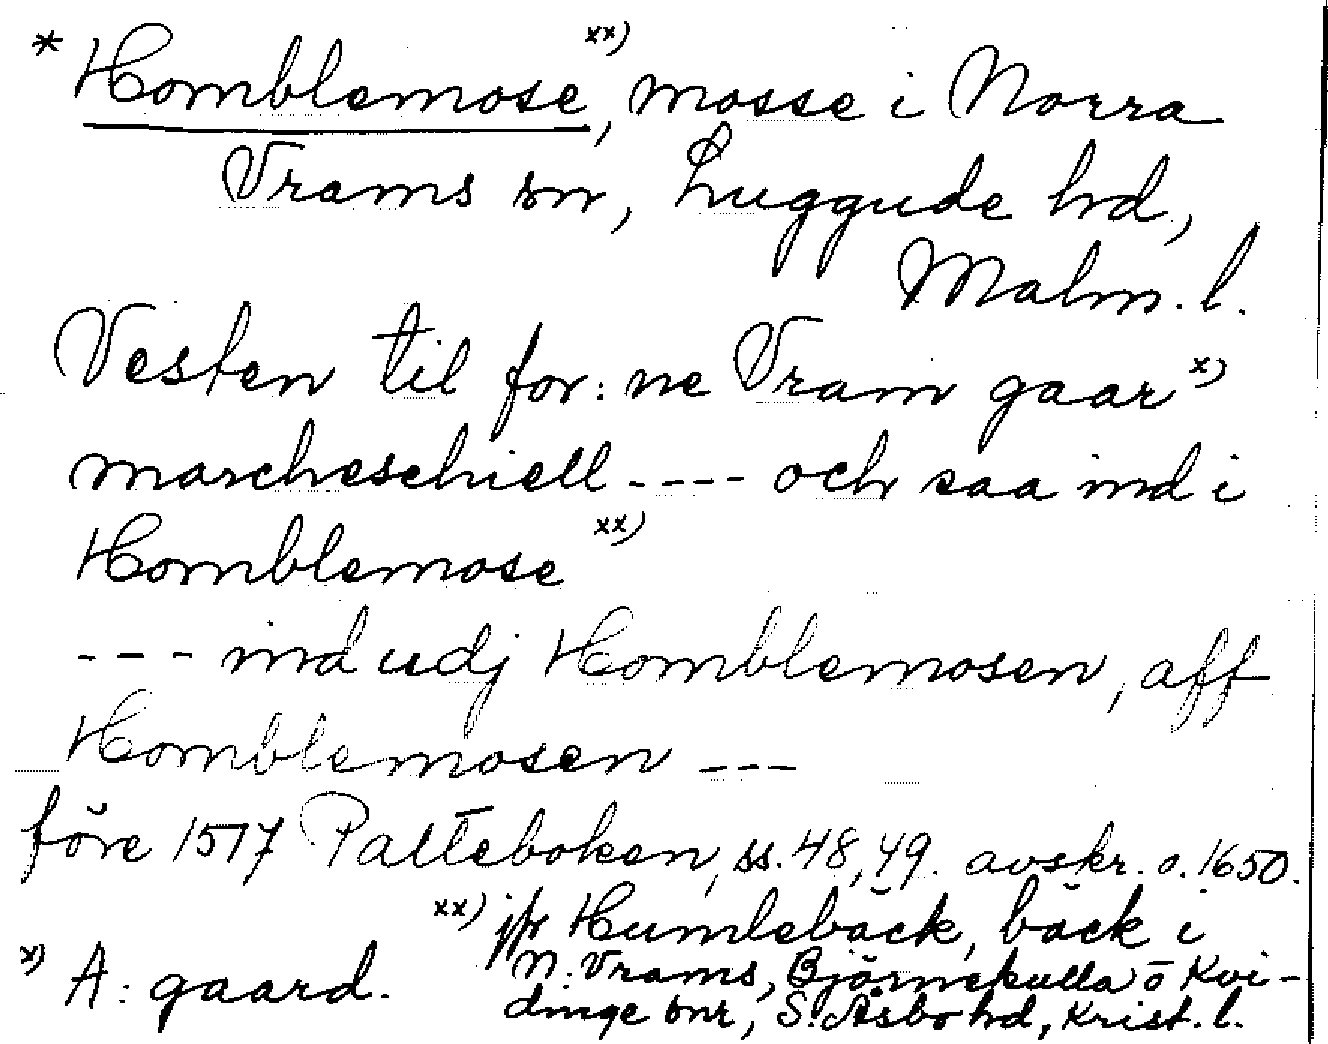 * Homblemose xx), mosse i Norra
Vrams sn, Luggude hd,
Malm. l.
Vesten til for: ne Vram gaar x)
marcheschiell ---- och saa ind i
Homblemose xx)
--- ind udj Homblemosen, aff
Homblemosen ---
före 1517 Palteboken, ss. 48, 49. avskr. o. 1650.
xx) jfr Humlebäck, bäck i
N. Vrams, Björnekulla o Kvi-
dinge snr, S. Åsbo hd, Krist. l.
x) A: gaard.